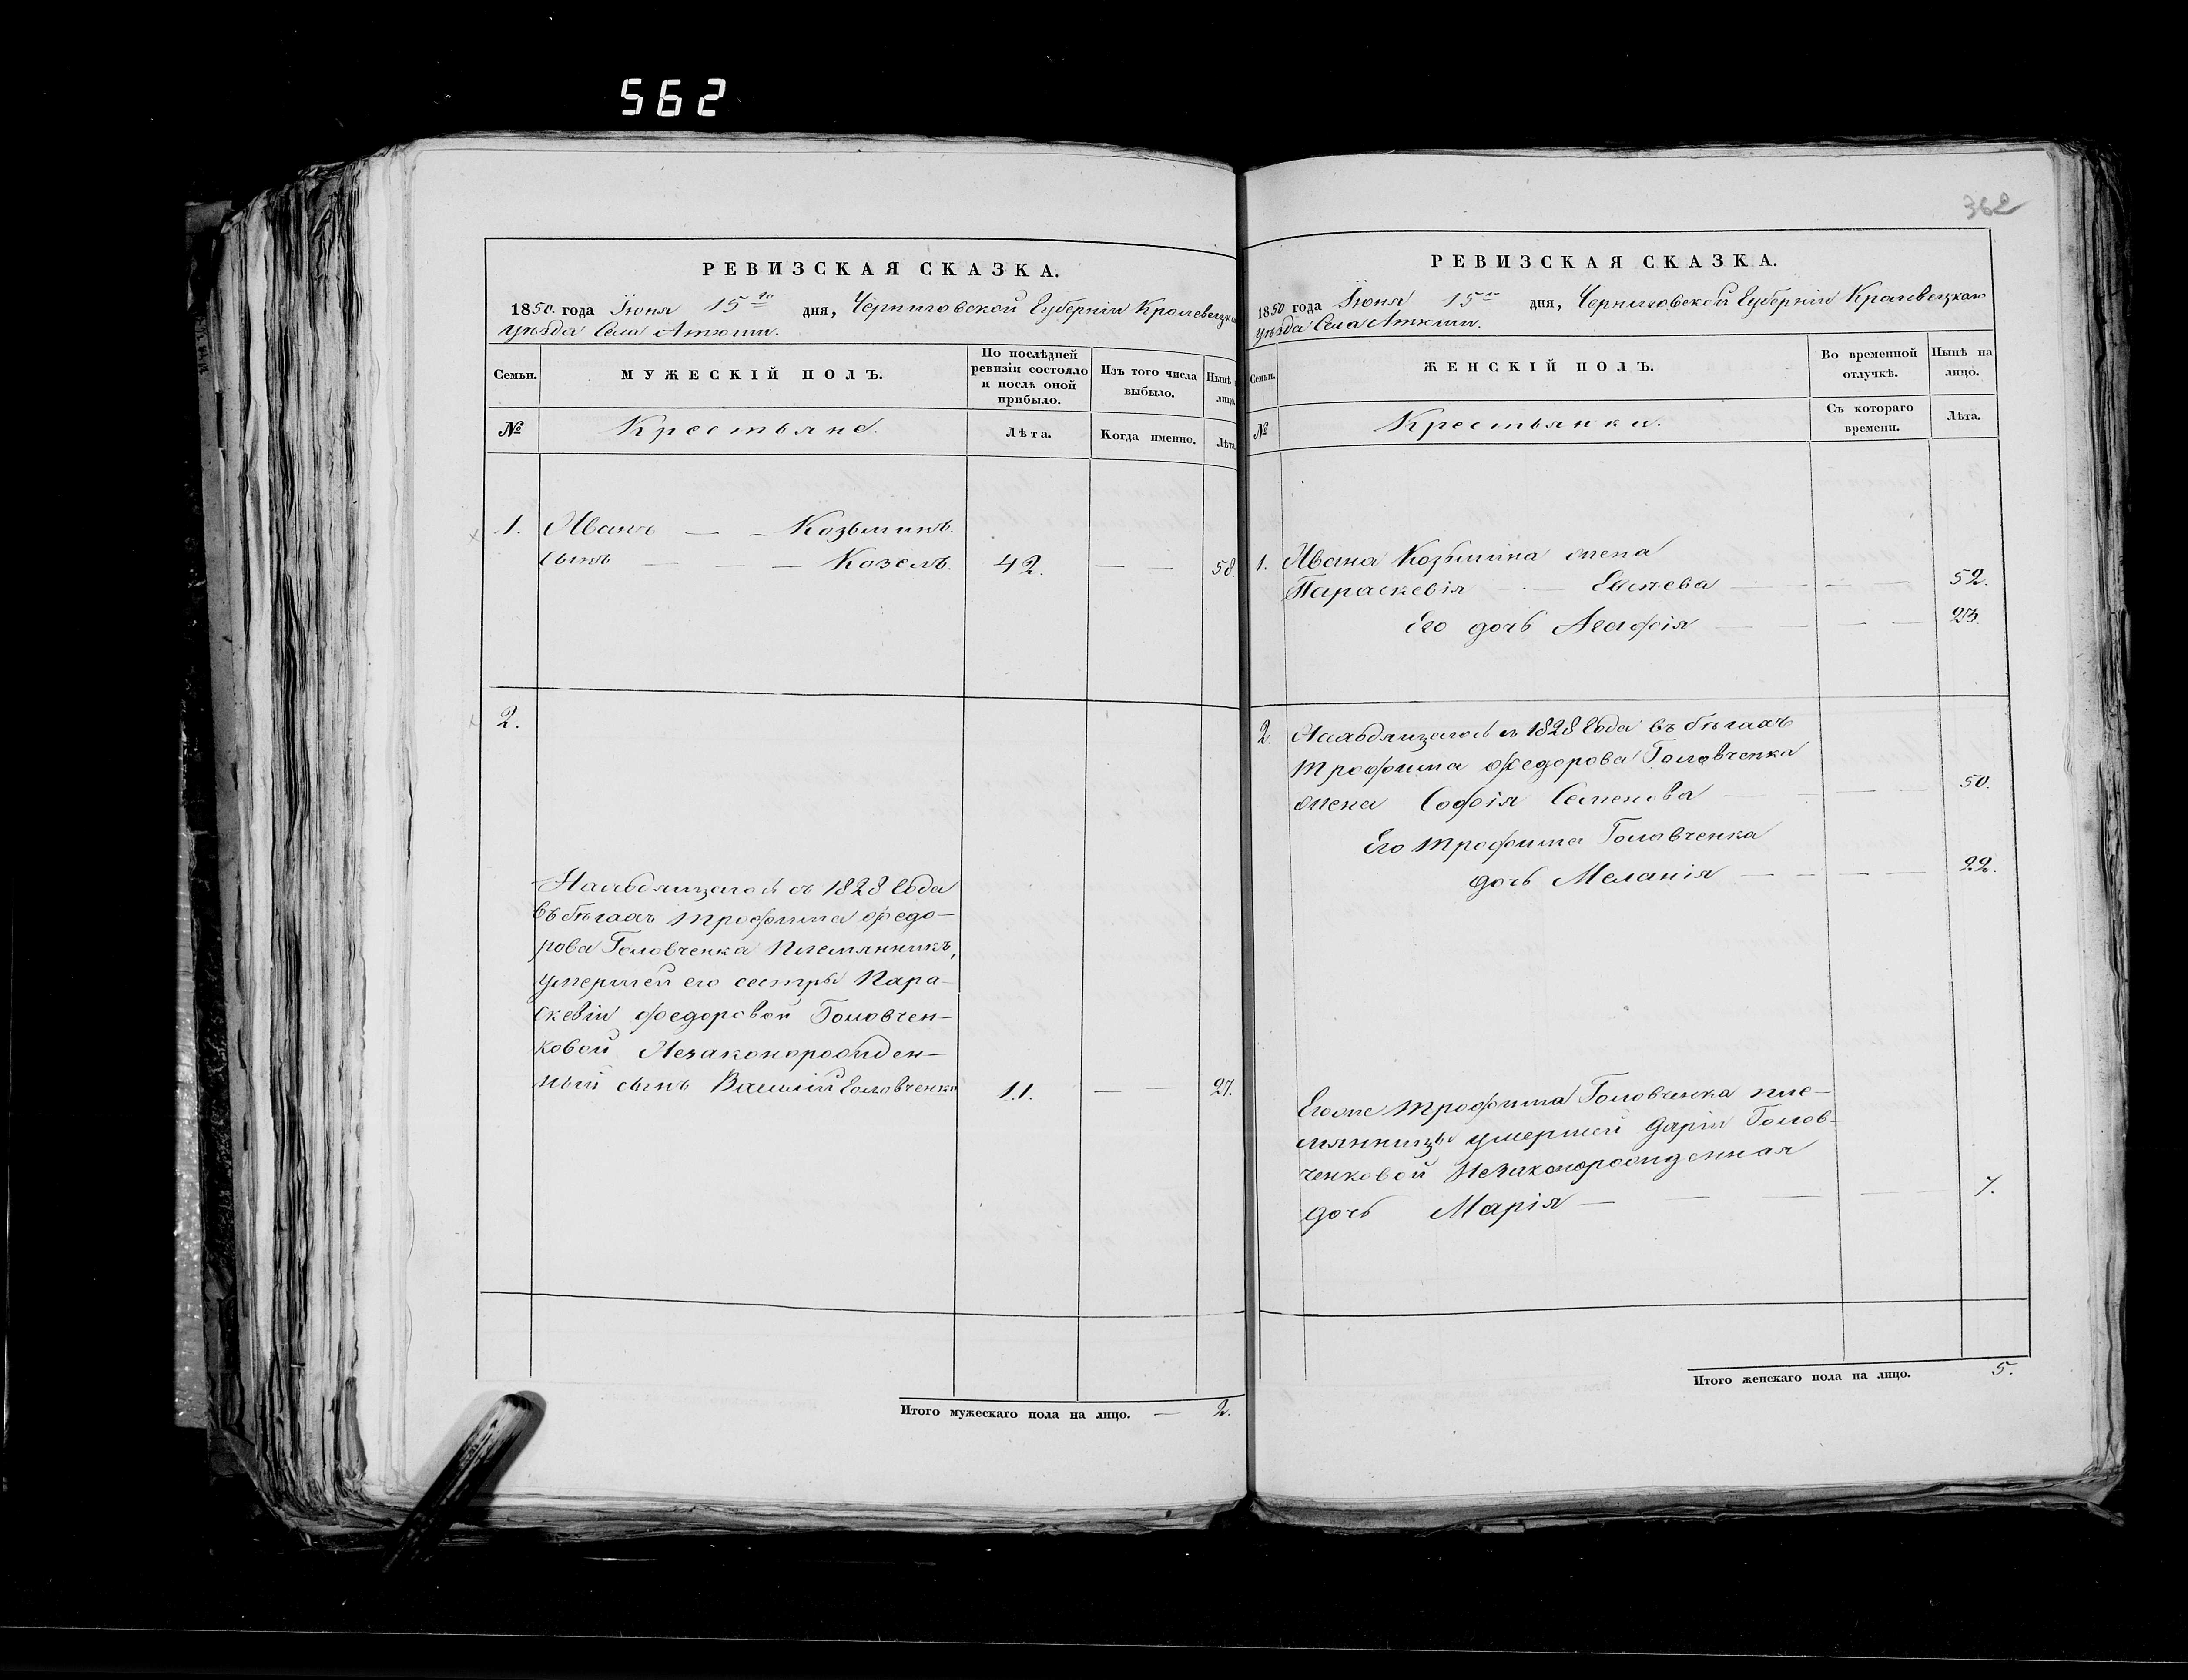 562
РЕВИЗСКАЯ СКАЗКА.
1850 года Іюня 15го дня, Черниговской Губерніи Кролевецка
уѣзда Села Атюши.
Семьи.
МУЖЕСКІЙ ПОЛЪ.
По послѣдней
ревизіи состояло
и послѣ оной
прибыло.
Изъ того числа
выбыло.
Нынѣ
лицо.
№
Крестьяне.
Лѣта.
Когда именно.
Лѣта
1. Иванъ — — Козьминъ.
сынъ — — — Козелъ. 42. — — 58.
2.
Находящегось съ 1828 Года
въ бѣгахъ Трофима Федо-
рова Головченка Племянникъ,
умершей его сестры Пара-
скевіи Федоровой Головчен-
ковой Незаконорожден-
ный сынъ Василій Головченко 11. — — 27.
Итого мужескаго пола на лицо. — 2.
362
РЕВИЗСКАЯ СКАЗКА.
1850 года Іюня 15го дня, Черниговской Губерніи Кролевецкаго
уѣзда Села Атюши.
Семьи.
ЖЕНСКІЙ ПОЛЪ.
Во временной
отлучкѣ.
Нынѣ на
лицо.
№
Крестьянки.
Съ котораго
времени.
Лѣта.
1. Ивана Козьмина жена
Параскевія — — — — — 52.
Его дочь Агафія — — — 23.
2. Находящегось съ 1828 Года въ бѣгахъ
Трофима Федорова Головченка
жена Софія Семенова — — — — 50.
Его Трофима Головченка
дочь Меланія — — — — 22.
Егоже Трофима Головченка пле-
мянницы умершей Даріи Голов-
ченковой Незаконорожденная
дочь Марія — — — — 7.
Итого женскаго пола на лицо. 5.